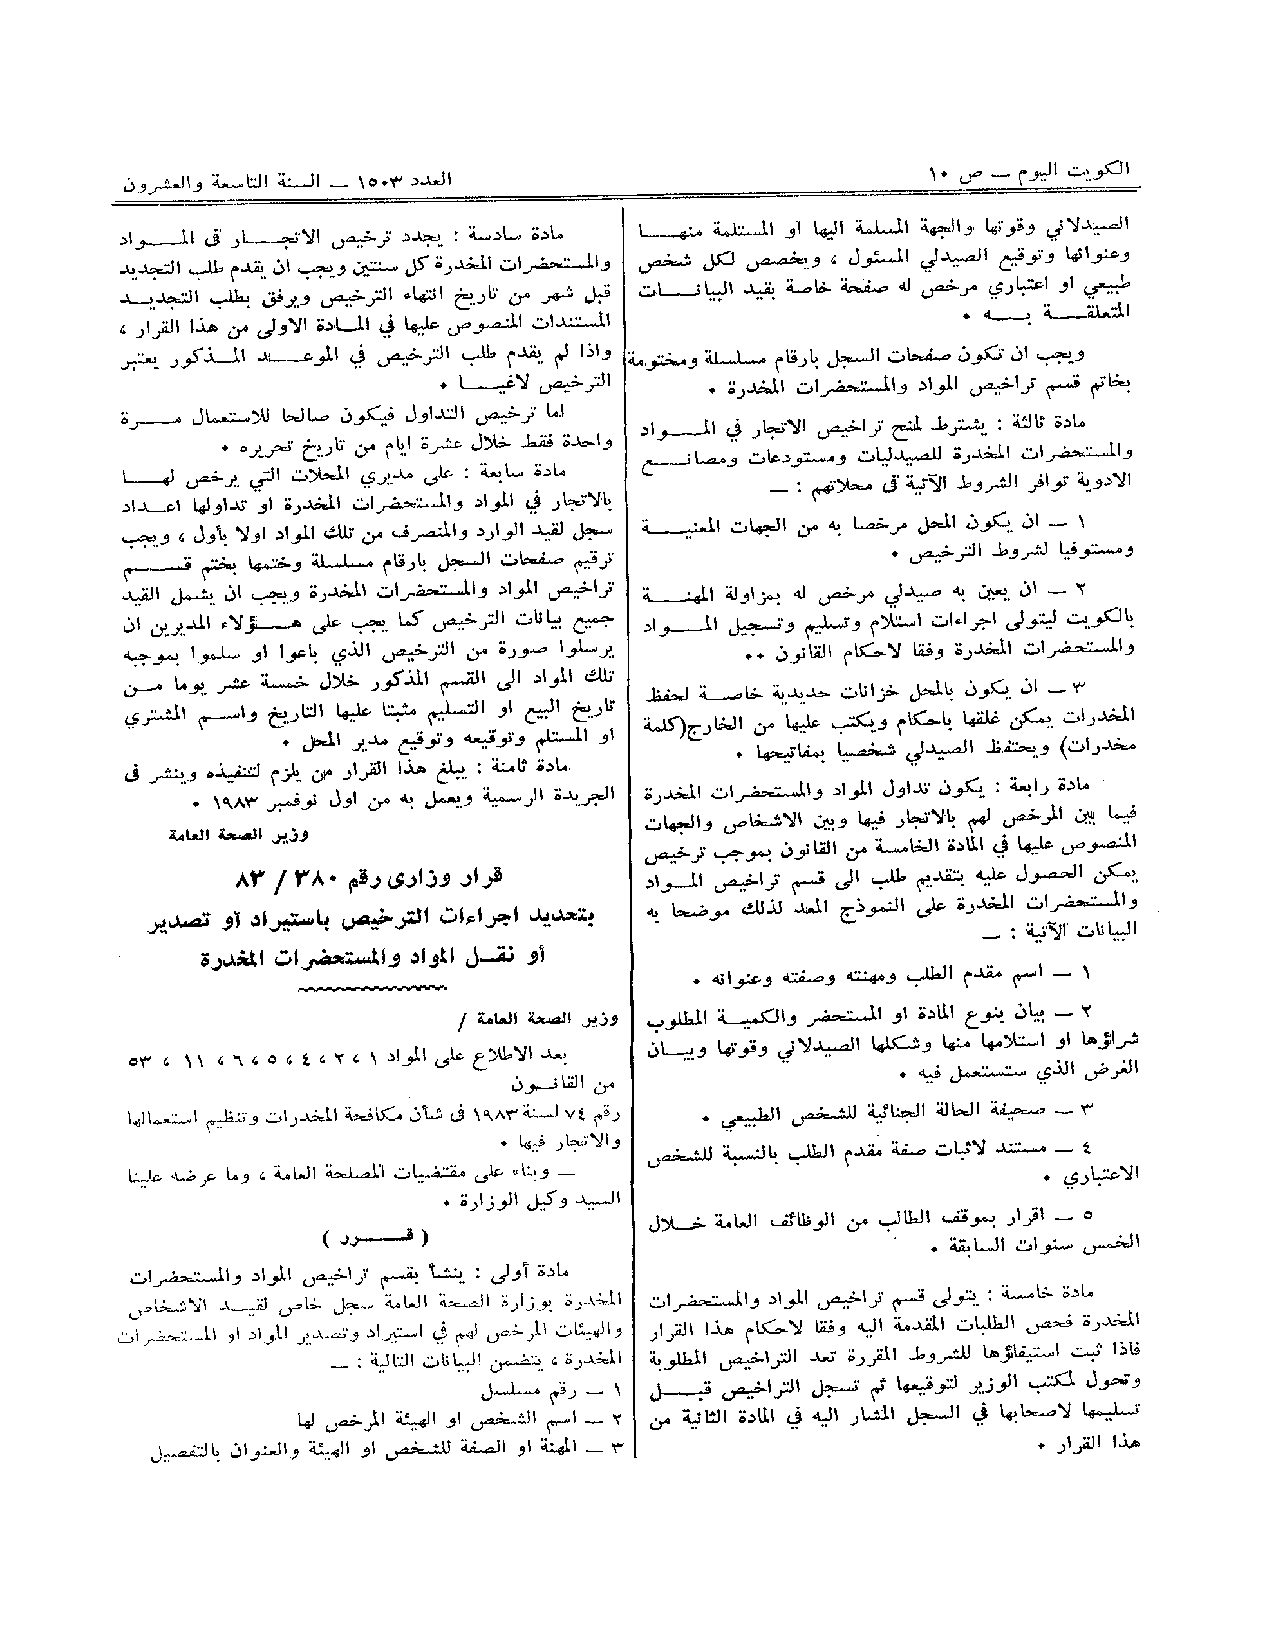 الكويت اليوم — ص ١٠
العدد ١٥٠٣ — السنة التاسعة والعشرون
الصيدلاني وقوتها والجهة المسلمة اليها او المستلمة منهـــا
وعنوانها وتوقيع الصيدلي المسئول ، ويخصص لكل شخص
طبيعي او اعتباري مرخص له صفحة خاصة بقيد البيانـــات
المتعلقـــة بـــه •
ويجب ان تكون صفحات السجل بارقام مسلسلة ومختومة
بخاتم قسم تراخيص المواد والمستحضرات المخدرة •
مادة ثالثة : يشترط لمنح تراخيص الاتجار في المـــواد
والمستحضرات المخدرة للصيدليات ومستودعات ومصانـــع
الادوية توافر الشروط الآتية في محلاتهم : —
١ — ان يكون المحل مرخصا به من الجهات المعنيـــة
ومستوفيا لشروط الترخيص •
٢ — ان يعين به صيدلي مرخص له بمزاولة المهنـــة
بالكويت ليتولى اجراءات استلام وتسليم وتسجيل المـــواد
والمستحضرات المخدرة وفقا لاحكام القانون ••
٣ — ان يكون بالمحل خزانات حديدية خاصـــة لحفظ
المخدرات يمكن غلقها باحكام ويكتب عليها من الخارج(كلمة
مخدرات) ويحتفظ الصيدلي شخصيا بمفاتيحها •
مادة رابعة : يكون تداول المواد والمستحضرات المخدرة
فيما بين المرخص لهم بالاتجار فيها وبين الاشخاص والجهات
المنصوص عليها في المادة الخامسة من القانون بموجب ترخيص
يمكن الحصول عليه بتقديم طلب الى قسم تراخيص المـــواد
والمستحضرات المخدرة على النموذج المعد لذلك موضحا به
البيانات الآتية : —
١ — اسم مقدم الطلب ومهنته وصفته وعنوانه •
٢ — بيان بنوع المادة او المستحضر والكميـــة المطلوب
شراؤها او استلامها منها وشكلها الصيدلاني وقوتها وبيــان
الغرض الذي ستستعمل فيه •
٣ — صحيفة الحالة الجنائية للشخص الطبيعي •
٤ — مستند لاثبات صفة مقدم الطلب بالنسبة للشخص
الاعتباري •
٥ — اقرار بموقف الطالب من الوظائف العامة خـــلال
الخمس سنوات السابقة •
مادة خامسة : يتولى قسم تراخيص المواد والمستحضرات
المخدرة فحص الطلبات المقدمة اليه وفقا لاحكام هذا القرار
فاذا ثبت استيفاؤها للشروط المقررة تعد التراخيص المطلوبة
وتحول لمكتب الوزير لتوقيعها ثم تسجل التراخيص قبـــل
تسليمها لاصحابها في السجل المشار اليه في المادة الثانية من
هذا القرار •
مادة سادسة : يجدد ترخيص الاتجـــار في المـــواد
والمستحضرات المخدرة كل سنتين ويجب ان يقدم طلب التجديد
قبل شهر من تاريخ انتهاء الترخيص ويرفق بطلب التجديـــد
المستندات المنصوص عليها في المـادة الاولى من هذا القرار ،
واذا لم يقدم طلب الترخيص في الموعـــد المـذكور يعتبر
الترخيص لاغيـــا •
اما ترخيص التداول فيكون صالحا للاستعمال مـــرة
واحدة فقط خلال عشرة ايام من تاريخ تحريره •
مادة سابعة : على مديري المحلات التي يرخص لهـــا
بالاتجار في المواد والمستحضرات المخدرة او تداولها اعـــداد
سجل لقيد الوارد والمنصرف من تلك المواد اولا بأول ، ويجب
ترقيم صفحات السجل بارقام مسلسلة وختمها بختم قـــسم
تراخيص المواد والمستحضرات المخدرة ويجب ان يشمل القيد
جميع بيانات الترخيص كما يجب على هـــؤلاء المديرين ان
يرسلوا صورة من الترخيص الذي باعوا او سلموا بموجبه
تلك المواد الى القسم المذكور خلال خمسة عشر يوما مـــن
تاريخ البيع او التسليم مثبتا عليها التاريخ واســـم المشتري
او المستلم وتوقيعه وتوقيع مدير المحل •
مادة ثامنة : يبلغ هذا القرار من يلزم لتنفيذه وينشر في
الجريدة الرسمية ويعمل به من اول نوفمبر ١٩٨٣ •
وزير الصحة العامة
قرار وزارى رقم ٣٨٠ / ٨٣
بتحديد اجراءات الترخيص باستيراد أو تصدير
أو نقــل المواد والمستحضرات المخدرة
وزير الصحة العامة /
بعد الاطلاع على المواد ١ ، ٢ ، ٤ ، ٥ ، ٦ ، ١١ ، ٥٣
من القانـــون
رقم ٧٤ لسنة ١٩٨٣ في شأن مكافحة المخدرات وتنظيم استعمالها
والاتجار فيها •
— وبناء على مقتضيات المصلحة العامة ، وما عرضه علينا
السيد وكيل الوزارة •
( قـــرر )
مادة أولى : ينشأ بقسم تراخيص المواد والمستحضرات
المخدرة بوزارة الصحة العامة سجل خاص لقيـــد الاشخاص
والهيئات المرخص لهم في استيراد وتصدير المواد او المستحضرات
المخدرة ، يتضمن البيانات التالية : —
١ — رقم مسلسل
٢ — اسم الشخص او الهيئة المرخص لها
٣ — المهنة او الصفة للشخص او الهيئة والعنوان بالتفصيل